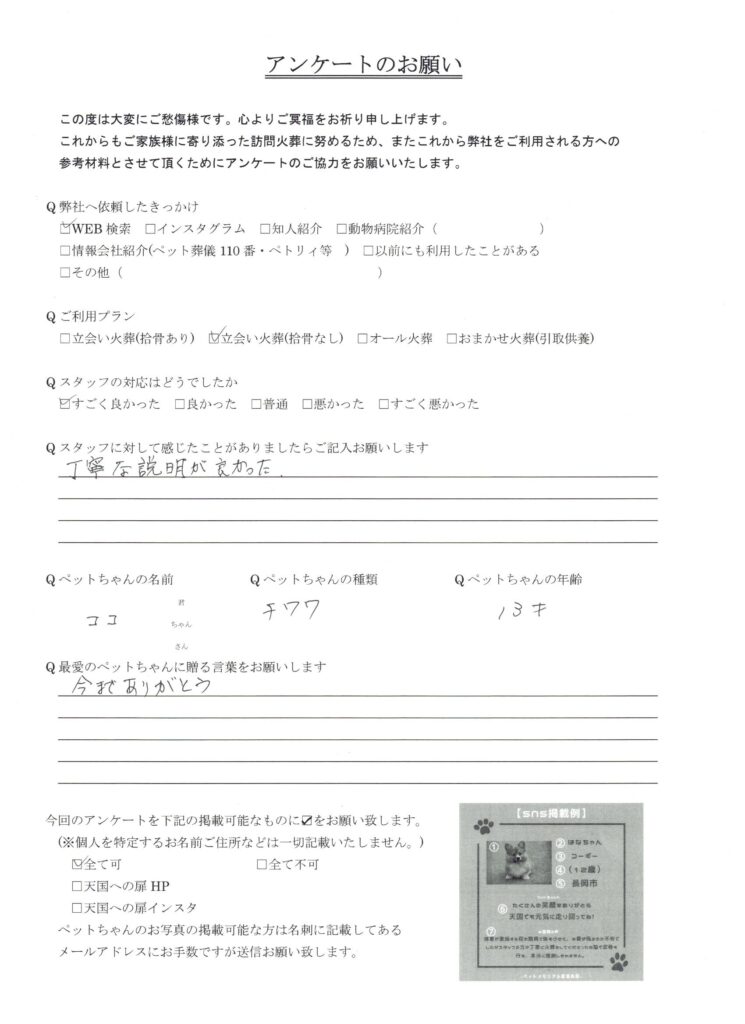 アンケートのお願い
この度は大変にご愁傷様です。心よりご冥福をお祈り申し上げます。
これからもご家族様に寄り添った訪問火葬に努めるため、またこれから弊社をご利用される方への
参考材料とさせて頂くためにアンケートのご協力をお願いいたします。
Q 弊社へ依頼したきっかけ
☑WEB 検索 □インスタグラム □知人紹介 □動物病院紹介（ ）
□情報会社紹介(ペット葬儀 110 番・ペトリィ等 ) □以前にも利用したことがある
□その他（ ）
Q ご利用プラン
□立会い火葬(拾骨あり) ☑立会い火葬(拾骨なし) □オール火葬 □おまかせ火葬(引取供養)
Q スタッフの対応はどうでしたか
☑すごく良かった □良かった □普通 □悪かった □すごく悪かった
Q スタッフに対して感じたことがありましたらご記入お願いします
丁寧な説明が良かった.
Q ペットちゃんの名前 Q ペットちゃんの種類 Q ペットちゃんの年齢
君
ココ ちゃん チワワ 13才
さん
Q 最愛のペットちゃんに贈る言葉をお願いします
今までありがとう
今回のアンケートを下記の掲載可能なものに☑をお願い致します。
(※個人を特定するお名前ご住所などは一切記載いたしません。)
☑全て可 □全て不可
□天国への扉 HP
□天国への扉インスタ
ペットちゃんのお写真の掲載可能な方は名刺に記載してある
メールアドレスにお手数ですが送信お願い致します。
【sns掲載例】
① ② はなちゃん
③ コーギー
④ （12歳）
⑤ 長岡市
⑥ たくさんの笑顔をありがとう
天国でも元気に走り回ってね!
⑦